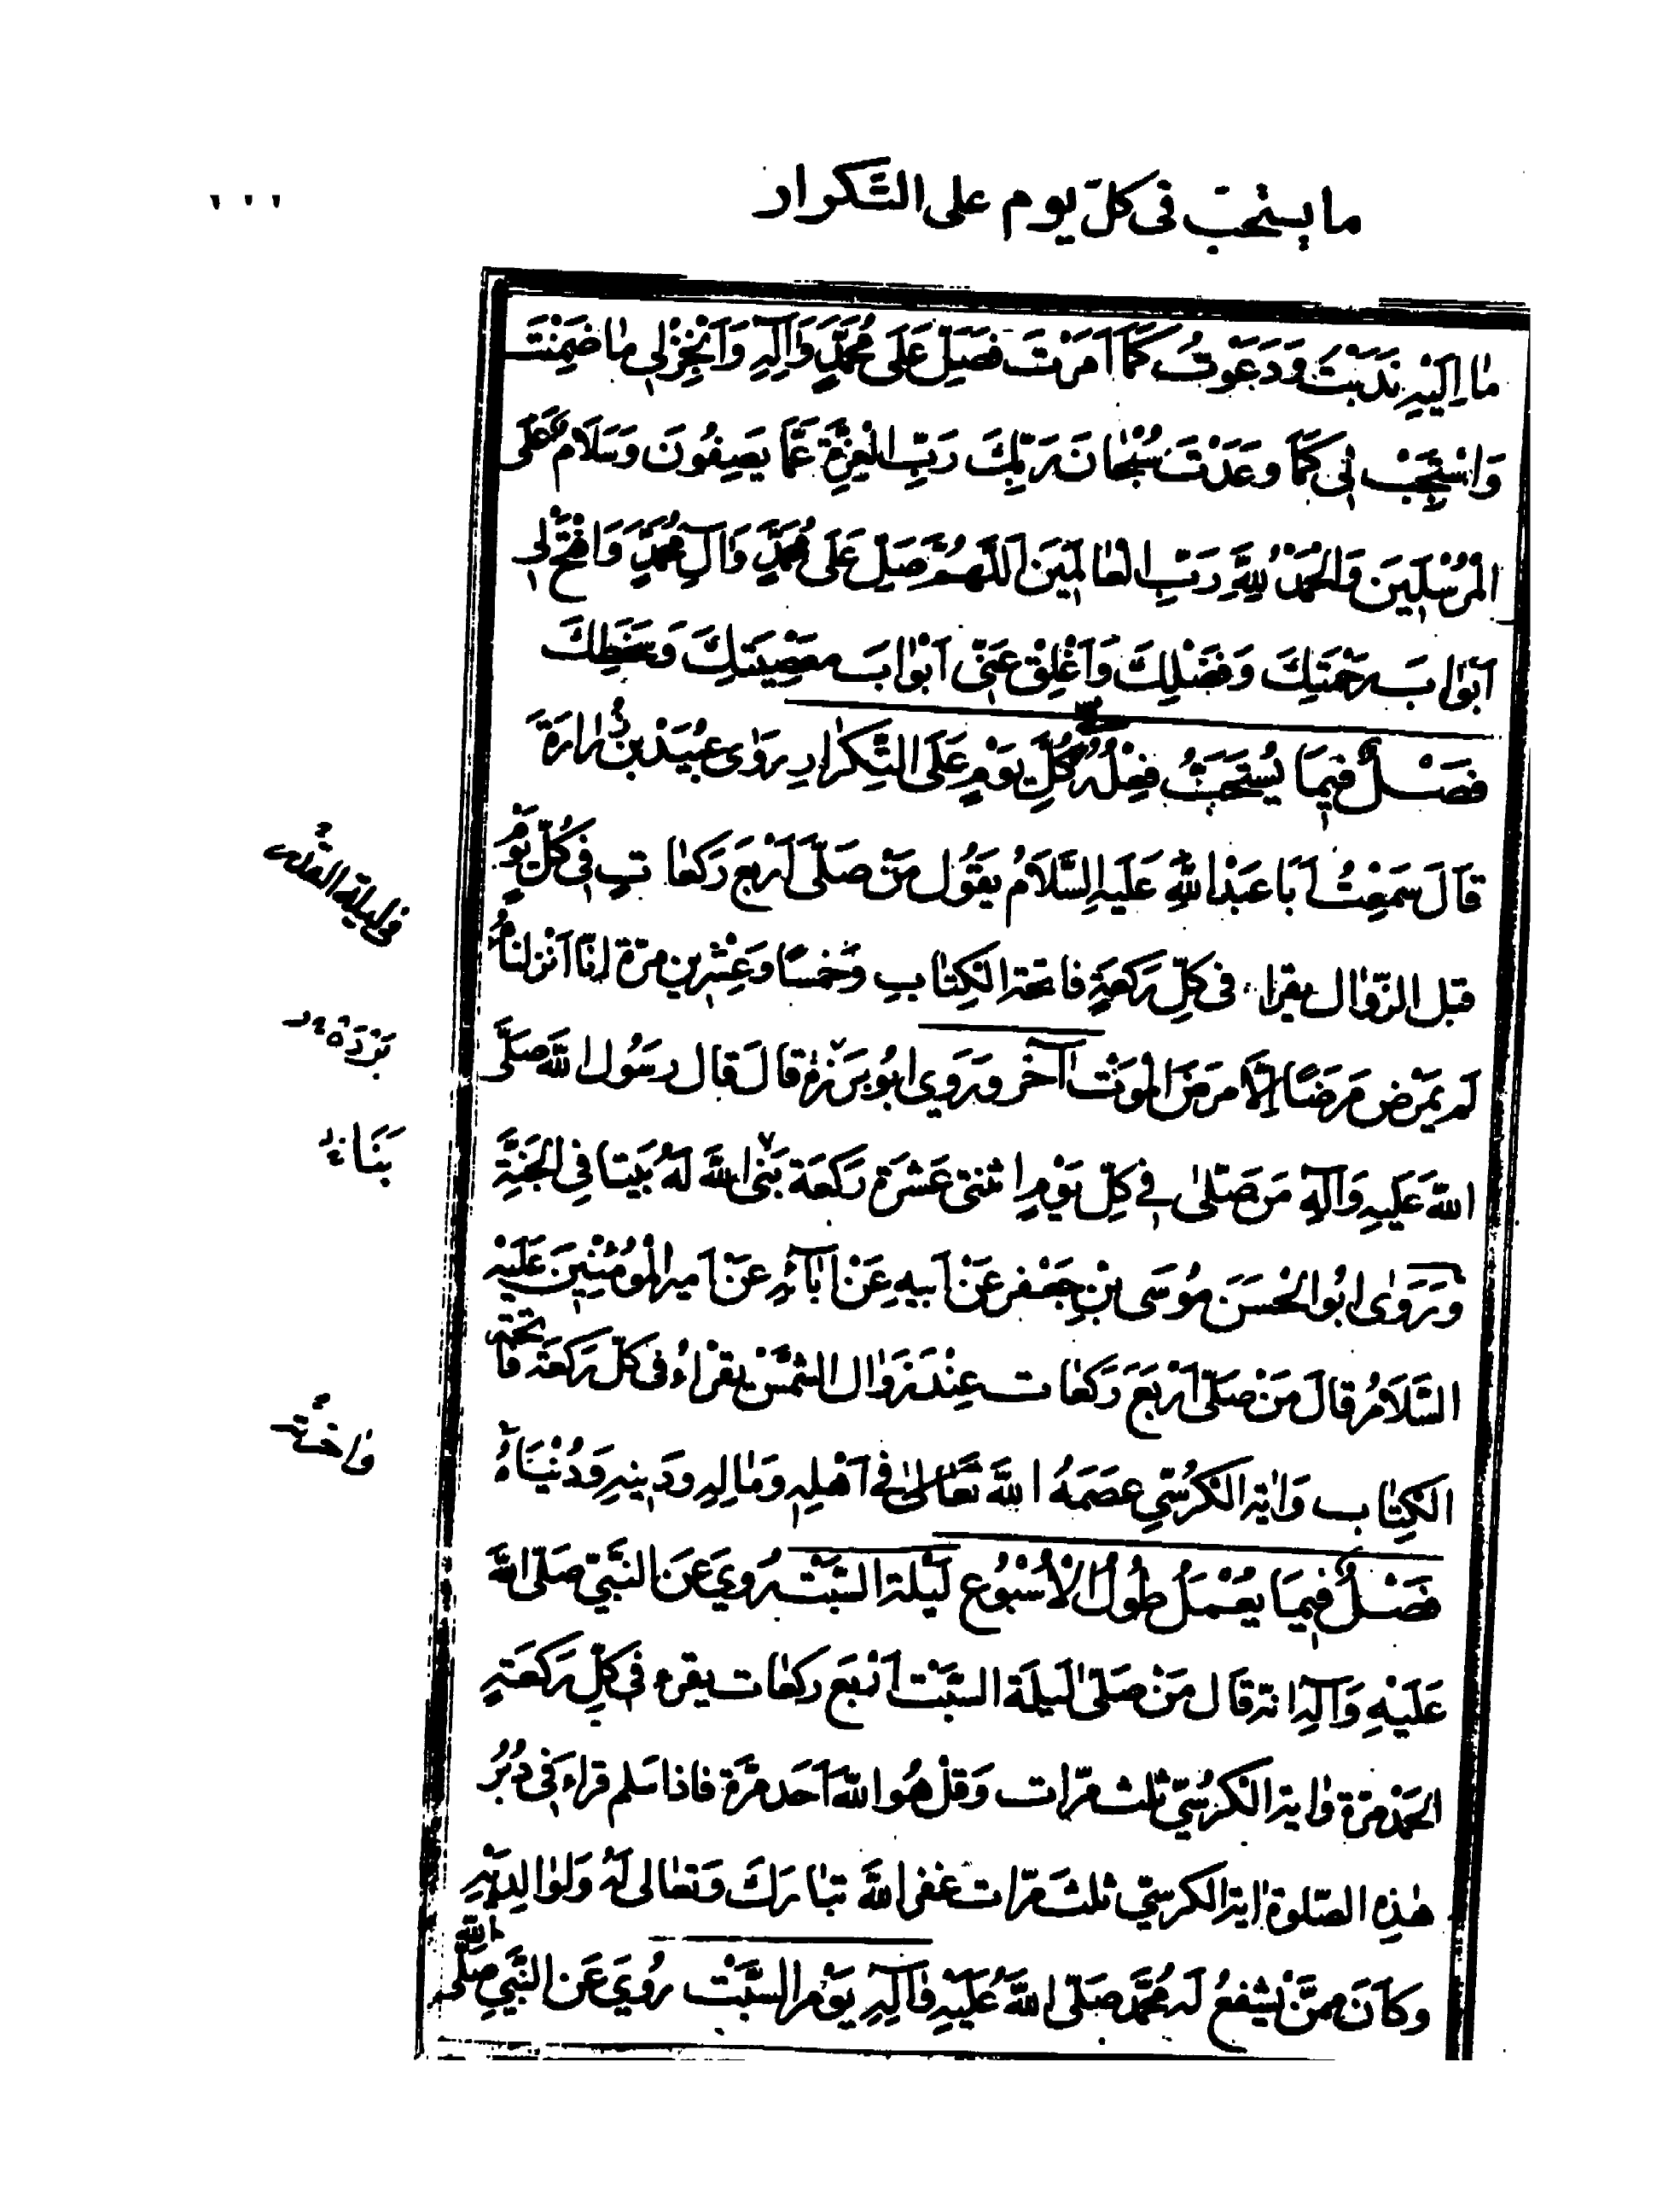 ما يستحبّ فى كلّ يوم على التّكرار
٢٢٢
مٰا اِلَيْهِ نَدَبْتَ وَدَعَوْتُ كَمٰا اَمَرْتَ فَصَلِّ عَلىٰ مُحَمَّدٍ وَآلِهِ وَاَنْجِزْ لِى مٰا ضَمِنْتَ
وَاسْتَجِبْ لِى كَمٰا وَعَدْتَ سُبْحٰانَ رَبِّكَ رَبِّ الْعِزَّةِ عَمّٰا يَصِفُونَ وَسَلَامٌ عَلَى
الْمُرْسَلِينَ وَالْحَمْدُ لِلّٰهِ رَبِّ الْعٰالَمِينَ اَللّٰهُمَّ صَلِّ عَلىٰ مُحَمَّدٍ وَآلِ مُحَمَّدٍ وَافْتَحْ لِى
اَبْوٰابَ رَحْمَتِكَ وَفَضْلِكَ وَاَغْلِقْ عَنّى اَبْوٰابَ مَعْصِيَتِكَ وَسَخَطِكَ
فَصْلٌ فِيمَا يُسْتَحَبُّ فِعْلُهُ كُلِّ يَوْمٍ عَلَى التَّكْرٰارِ رَوٰى عُبَيْدُ بْنُ زُرٰارَةَ
قٰالَ سَمِعْتُ اَبَا عَبْدِ اللّٰهِ عَلَيْهِ السَّلَامُ يَقُول مَنْ صَلّىٰ اَرْبَعَ رَكَعٰاتٍ فِى كُلِّ يَوْمٍ
قبل الزّوٰال يقرا فى كلِّ رَكعَةٍ فاتحة الكِتٰابِ وَخَمسًا وَعِشْرِين مرّة اِنّٰا اَنْزَلنٰاهُ
لم يَمْرَض مَرَضًا اِلّٰا مَرَضَ الْمَوْتِ آخر وَرَوٰى اَبُو بَرزة قٰالَ قٰال رسَوُل اللّٰهِ صَلَّى
اللّٰه عَلَيهِ وَآلِهِ مَن صَلّىٰ فِى كلِّ يَوْمٍ اثنتى عَشْرَة رَكعَة بَنَى اللّٰهُ لَهُ بَيتا فِى الجَنَّةِ
وَرَوٰى اَبُو الحْسَن مُوسَى بْنِ جَعْفر عَنْ اَبيهِ عَنْ اٰبٰائِهِ عَنْ اَمير الْمُؤمِنِينَ عَلَيْهِ
السَّلَامُ قٰالَ مَنْ صَلّىٰ اَرْبَعَ رَكعٰات عِنْدَ زَوٰال الشَّمْسِ يقرْاُ فى كلّ رَكعَة فٰاتحة
الكِتٰاب وَاٰيَة الكُرْسِّي عصَمَهُ اللّٰهُ تَعٰالىٰ فى اَهْلِهِ وَمٰالِهِ ودَينهِ وَدُنْيٰاهُ
فَصْلٌ فِيمَا يُعْمَلُ طُولَ الْاُسْبُوُع لَيْلَة السَّبْتِ رُوِيَ عَنِ النَّبيِّ صَلّى اللّٰهُ
عَلَيْهِ وَآلِهِ انّهُ قٰالَ مَنْ صَلّىٰ لَيلَةَ السَّبْتِ اَرْبَعَ رَكعٰات يقرء فى كلِّ رَكعَةٍ
الحَمْدَ مرّة وَاٰية الكُرْسِيّ ثلث مرّات وَقل هُوَ اللّٰهُ اَحَد مرّة فاذا سَلم قراء فِى دُبُرِ
هٰذِهِ الصَّلوة اٰية الكرسيّ ثلث مرّات غفر اللّٰهُ تبٰارَكَ وَتعٰالى لَهُ وَلوٰالِدَيْهِ
وكاَنَ ممّنْ يشفعُ لَه محُمَّد صَلّى اللّٰهُ عَلَيْهِ وَآلِهِ يَوْمَ السَّبْتِ رُوِيَ عَن النَّبيِّ صَلَّى اللّٰه
فى ليلة القدر
بنَا
وٰاخرته